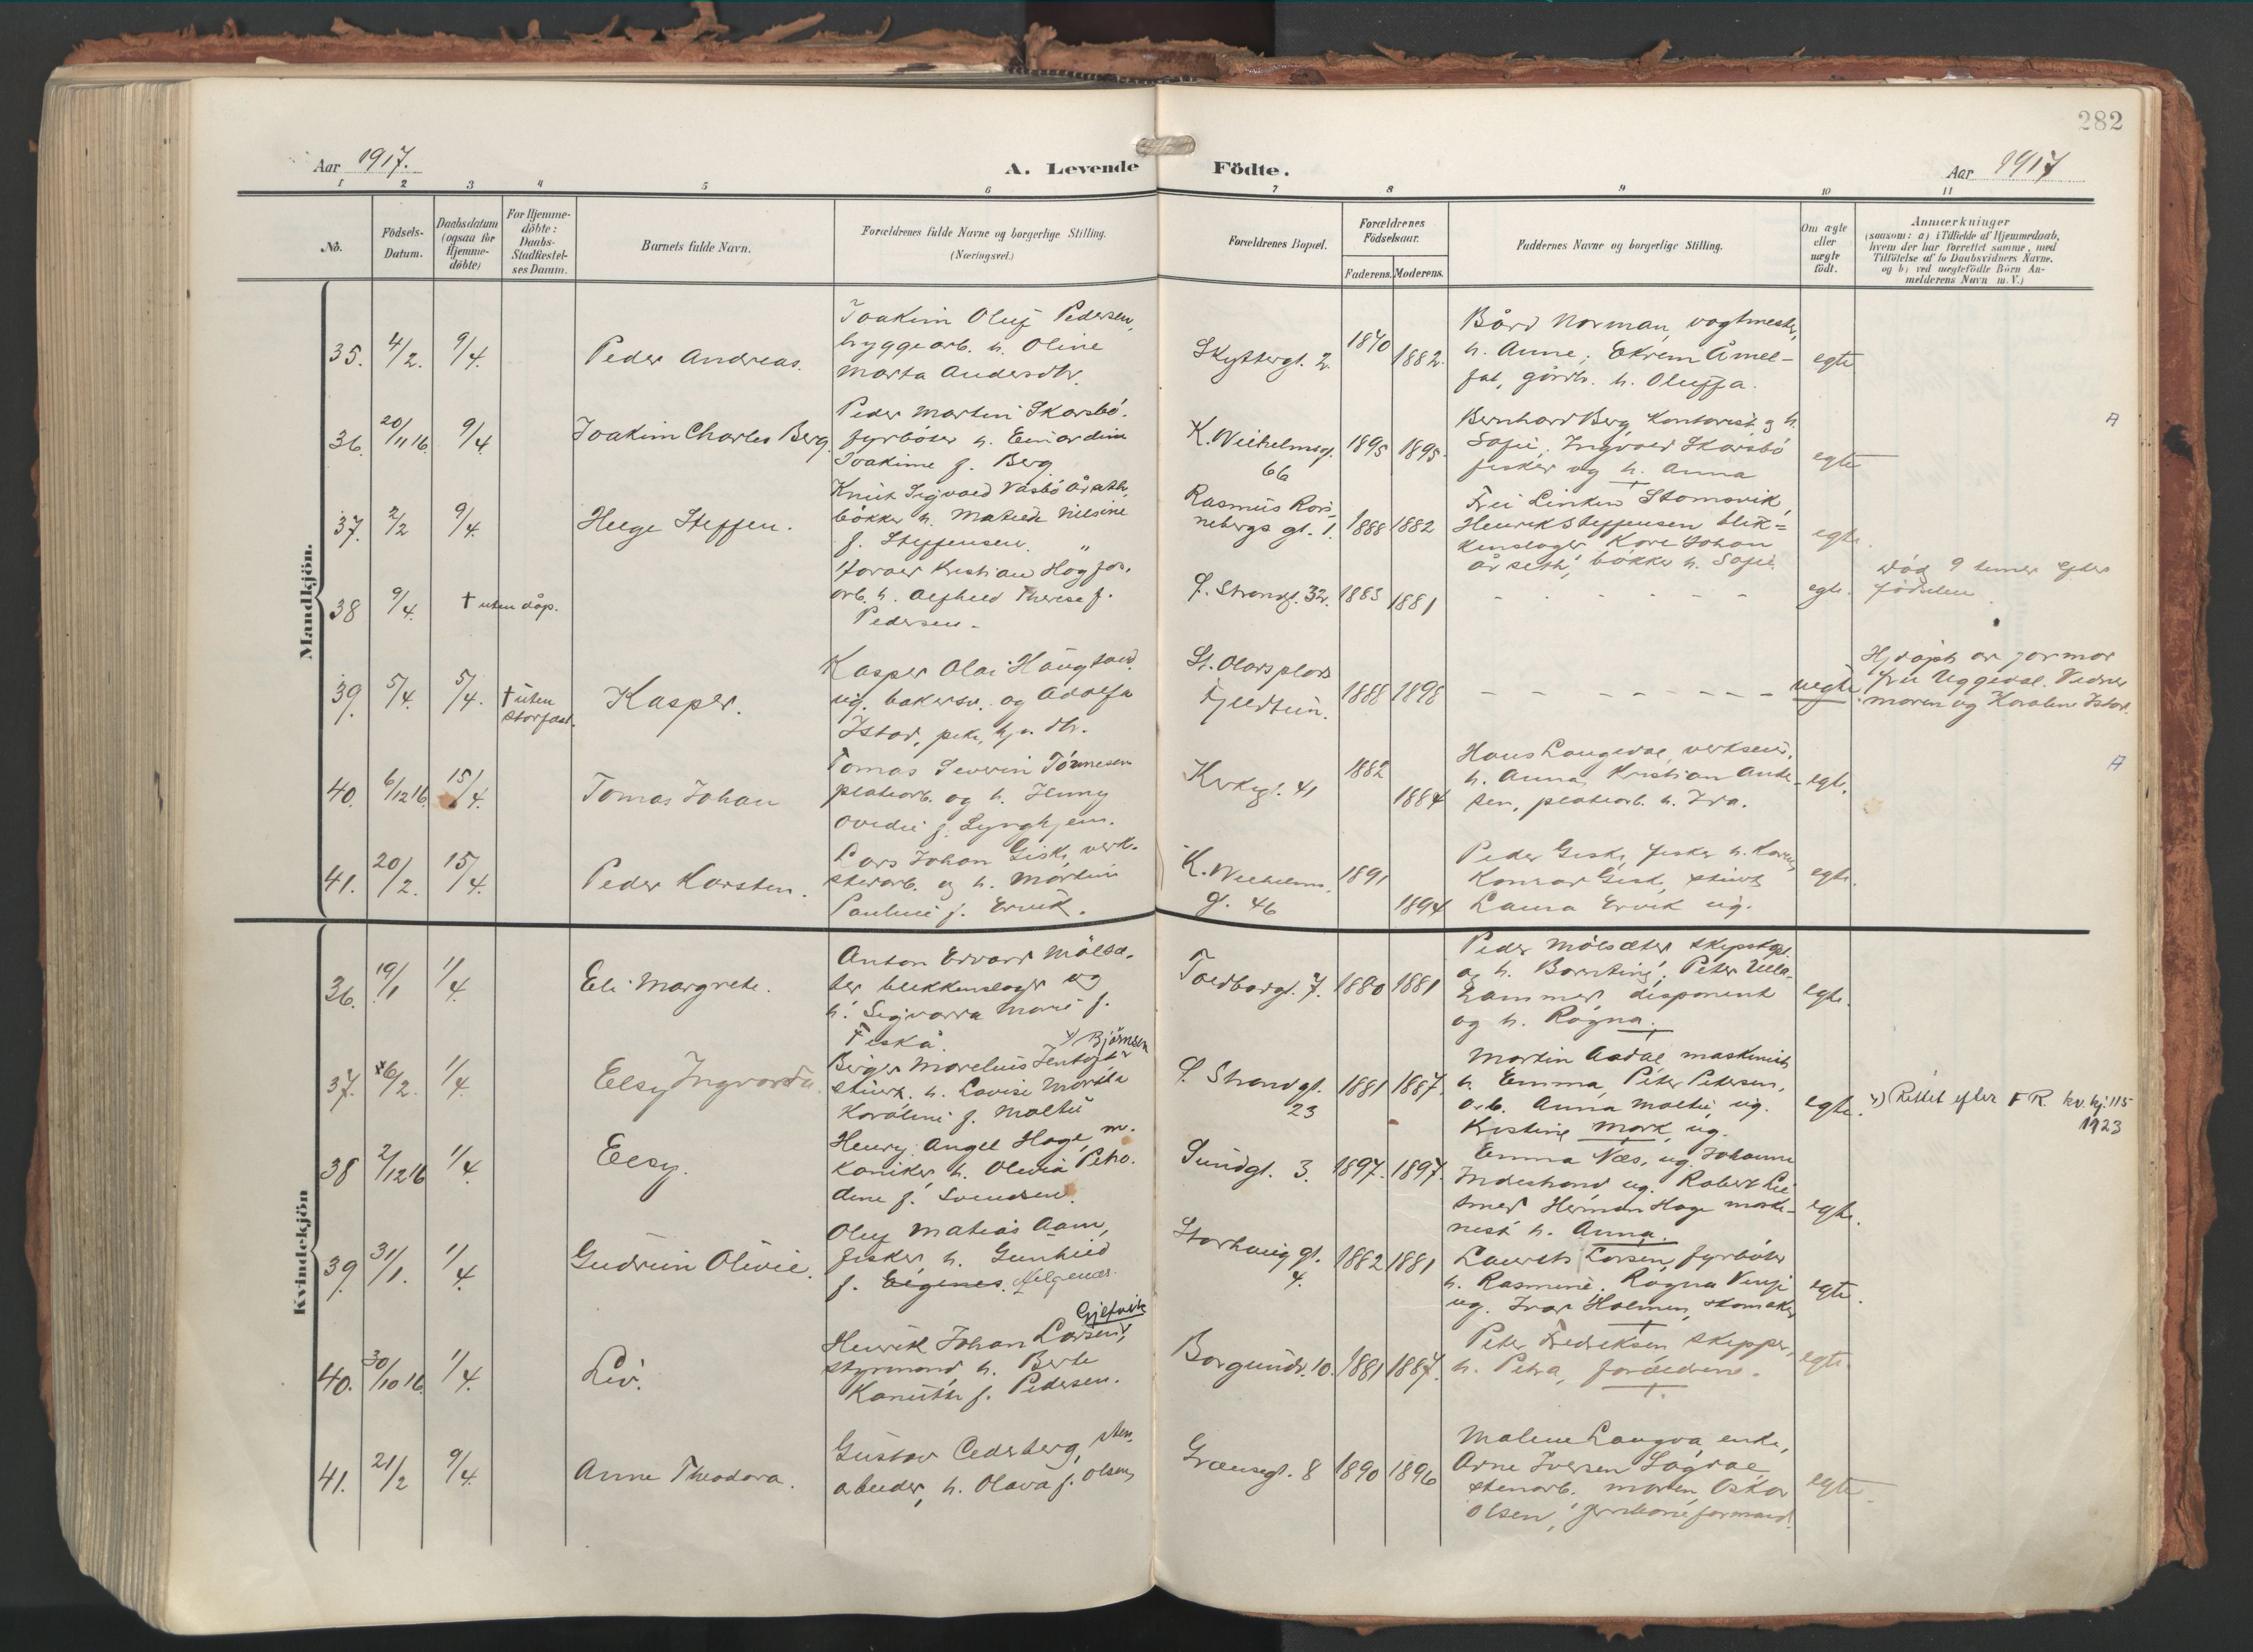 282
Aar 1917.
A. Levende Födte.
Aar 1917
1 2 3 4 5 6 7 8 9 10 11
No.
Födsels-
Datum.
Daabsdatum
(ogsaa for
Hjemme-
döbte)
For Hjemme-
döbte:
Daabs-
Stadfæstel-
ses Datum.
Barnets fulde Navn.
Forældrenes fulde Navne og borgerlige Stilling.
(Næringsvei.)
Forældrenes Bopæl.
Forældrenes
Födselsaar.
Faderens. Moderens.
Faddernes Navne og borgerlige Stilling.
Om ægte
eller
uægte
födt.
Anmærkninger
(saasom: a) i Tilfælde af Hjemmedaab,
hvem der har forrettet samme, med
Tilföielse af to Daabsvidners Navne,
og b) ved uægtefödte Börn An-
melderens Navn m. V.)
Mandkjön.
35. 4/2. 9/4. Peder Andreas.
Joakim Oluf Pedersen,
bryggearb. h. Oline
Marta Andersdtr.
Skyttergt. 2. 1870 1882.
Bård Norman, vagtmester,
h. Anne; Ekrem Åmel-
fat, gårdb. h. Oluffa.
egte
36. 20/11 16. 9/4. Joakim Charles Berg.
Peder Martin Skarsbö.
fyrböter h. Einardine
Joakime f. Berg
K. Wilhelmsgt.
66
1895 1895.
Bernhard Berg, kontorist og h.
Sofie, Ingvald Skarsbö
fisker og h. Anna
egte
A
37. 2/2 9/4. Helge Steffen.
Knut Sigvald Vasbö Årseth,
bökker h. Matilde Nilsine
f. Steffensen.
Rasmus Rön-
nebergs gt. 1. 1888 1882
Frei Linken Stomsvik,
Henrik Steffensen blik-
kenslager, Kare Johan
Årseth, bökker h. Sofie.
egte.
38 9/4. † uten dåp.
Harald Kristian Hog fos.
arb. h. Alfhild Therese f.
Pedersen.
S. Strandgt. 32. 1883 1881
- - - - - -
egte.
Död 9 timer efter
födselen.
39. 5/4. 5/4. † uten
storfæst.
Kasper.
Kasper Olai Haugland
ug. bakersv. og Adolfa
Istad, pike, hj. v. dtr.
St. Olavs plads
Fjeldtun.
1888 1898
- - - - - - - -
uegte.
Hj. döpt av jormor
fru Uggedal. Vidner
moren og Karoline Istad.
40. 6/12 16. 15/4. Tomas Johan
Tomas Severin Tönnesen
platearb. og h. Jenny
Ovedie f. Lynghjem.
Kirkegt. 41 1882 1884
Hans Langedal, verkseier,
h. Anna, Kristian Ande-
sen, platearb. h. Ida.
egte.
A
41. 20/2. 15/4. Peder Karsten.
Lars Johan Giske, verk-
stedarb. og h. Martine
Pauline f. Ervik.
K. Wilhelms.
gt. 46
1891 1894
Peder Giske, fisker h. Karen,
Konrad Giske, stuert
Laura Ervik ug.
egte.
Kvindekjön
36. 19/1 1/4. Eli Margrete.
Anton Edvard Mölsæ-
ter blikkenslager og
h. Sigvarda Marie f.
Fiskå.
Toldbodgt. 7. 1880 1881
Peder Mölsæter skipskapt.
og h. Berntine, Peter Ulla-
Lammer, disponent
og h. Ragna.
egte.
37. *6/2. 1/4. Elsy Ingvarda.
×) Björnsen
Birger Marelius Jentoft
stuert. h. Lovise Marda
Karoline f. Molte
S. Strandgt.
23
1881 1887.
Martin Aadal maskinist
h. Emma, Peter Petersen,
arb. Anna Malte, ug.
Kristine Mork, ug.
egte.
×) Rettet efter F R. kv. kj. 115
1923
38 2/12 16 1/4. Elsy.
Henry Angel Hage, m.
kaniker, h. Olivia Petro.
dine f. Svendsen.
Sundgt. 3. 1897. 1897.
Emma Næs, ug. Johanne
Indestrand ug. Robert Lie
smed Herman Hage maski-
nist h. Anna.
egte.
39. 31/1. 1/4 Gudrun Olivie.
Oluf Matias Aam,
fisker h. Gunhild
f. Eigenes. Helgenes
Storhauggt.
4.
1882 1881
Laurits Larsen, fyrböter
h. Rasmine, Ragna Vinje
ug. Ivar Holmen, skomaker
egte.
40. 30/10 16. 1/4. Liv.
Gjelsvik
Henrik Johan Larsen,
styrmand, h. Berte
Kanutte f. Pedersen.
Borgundv. 10. 1881 1887.
Peter Fredriksen, skipper,
h. Petra, forældrene.
egte.
41. 21/2 9/4. Anne Theodora.
Gustav Cederberg, sten-
arbeider, h. Olava f. Olsen,
Grænsegt. 8 1890 1896
Malene Langva, enke,
Arne Iversen Lågdal
stenarb. moren Oskar
Olsen, formand.
egte.